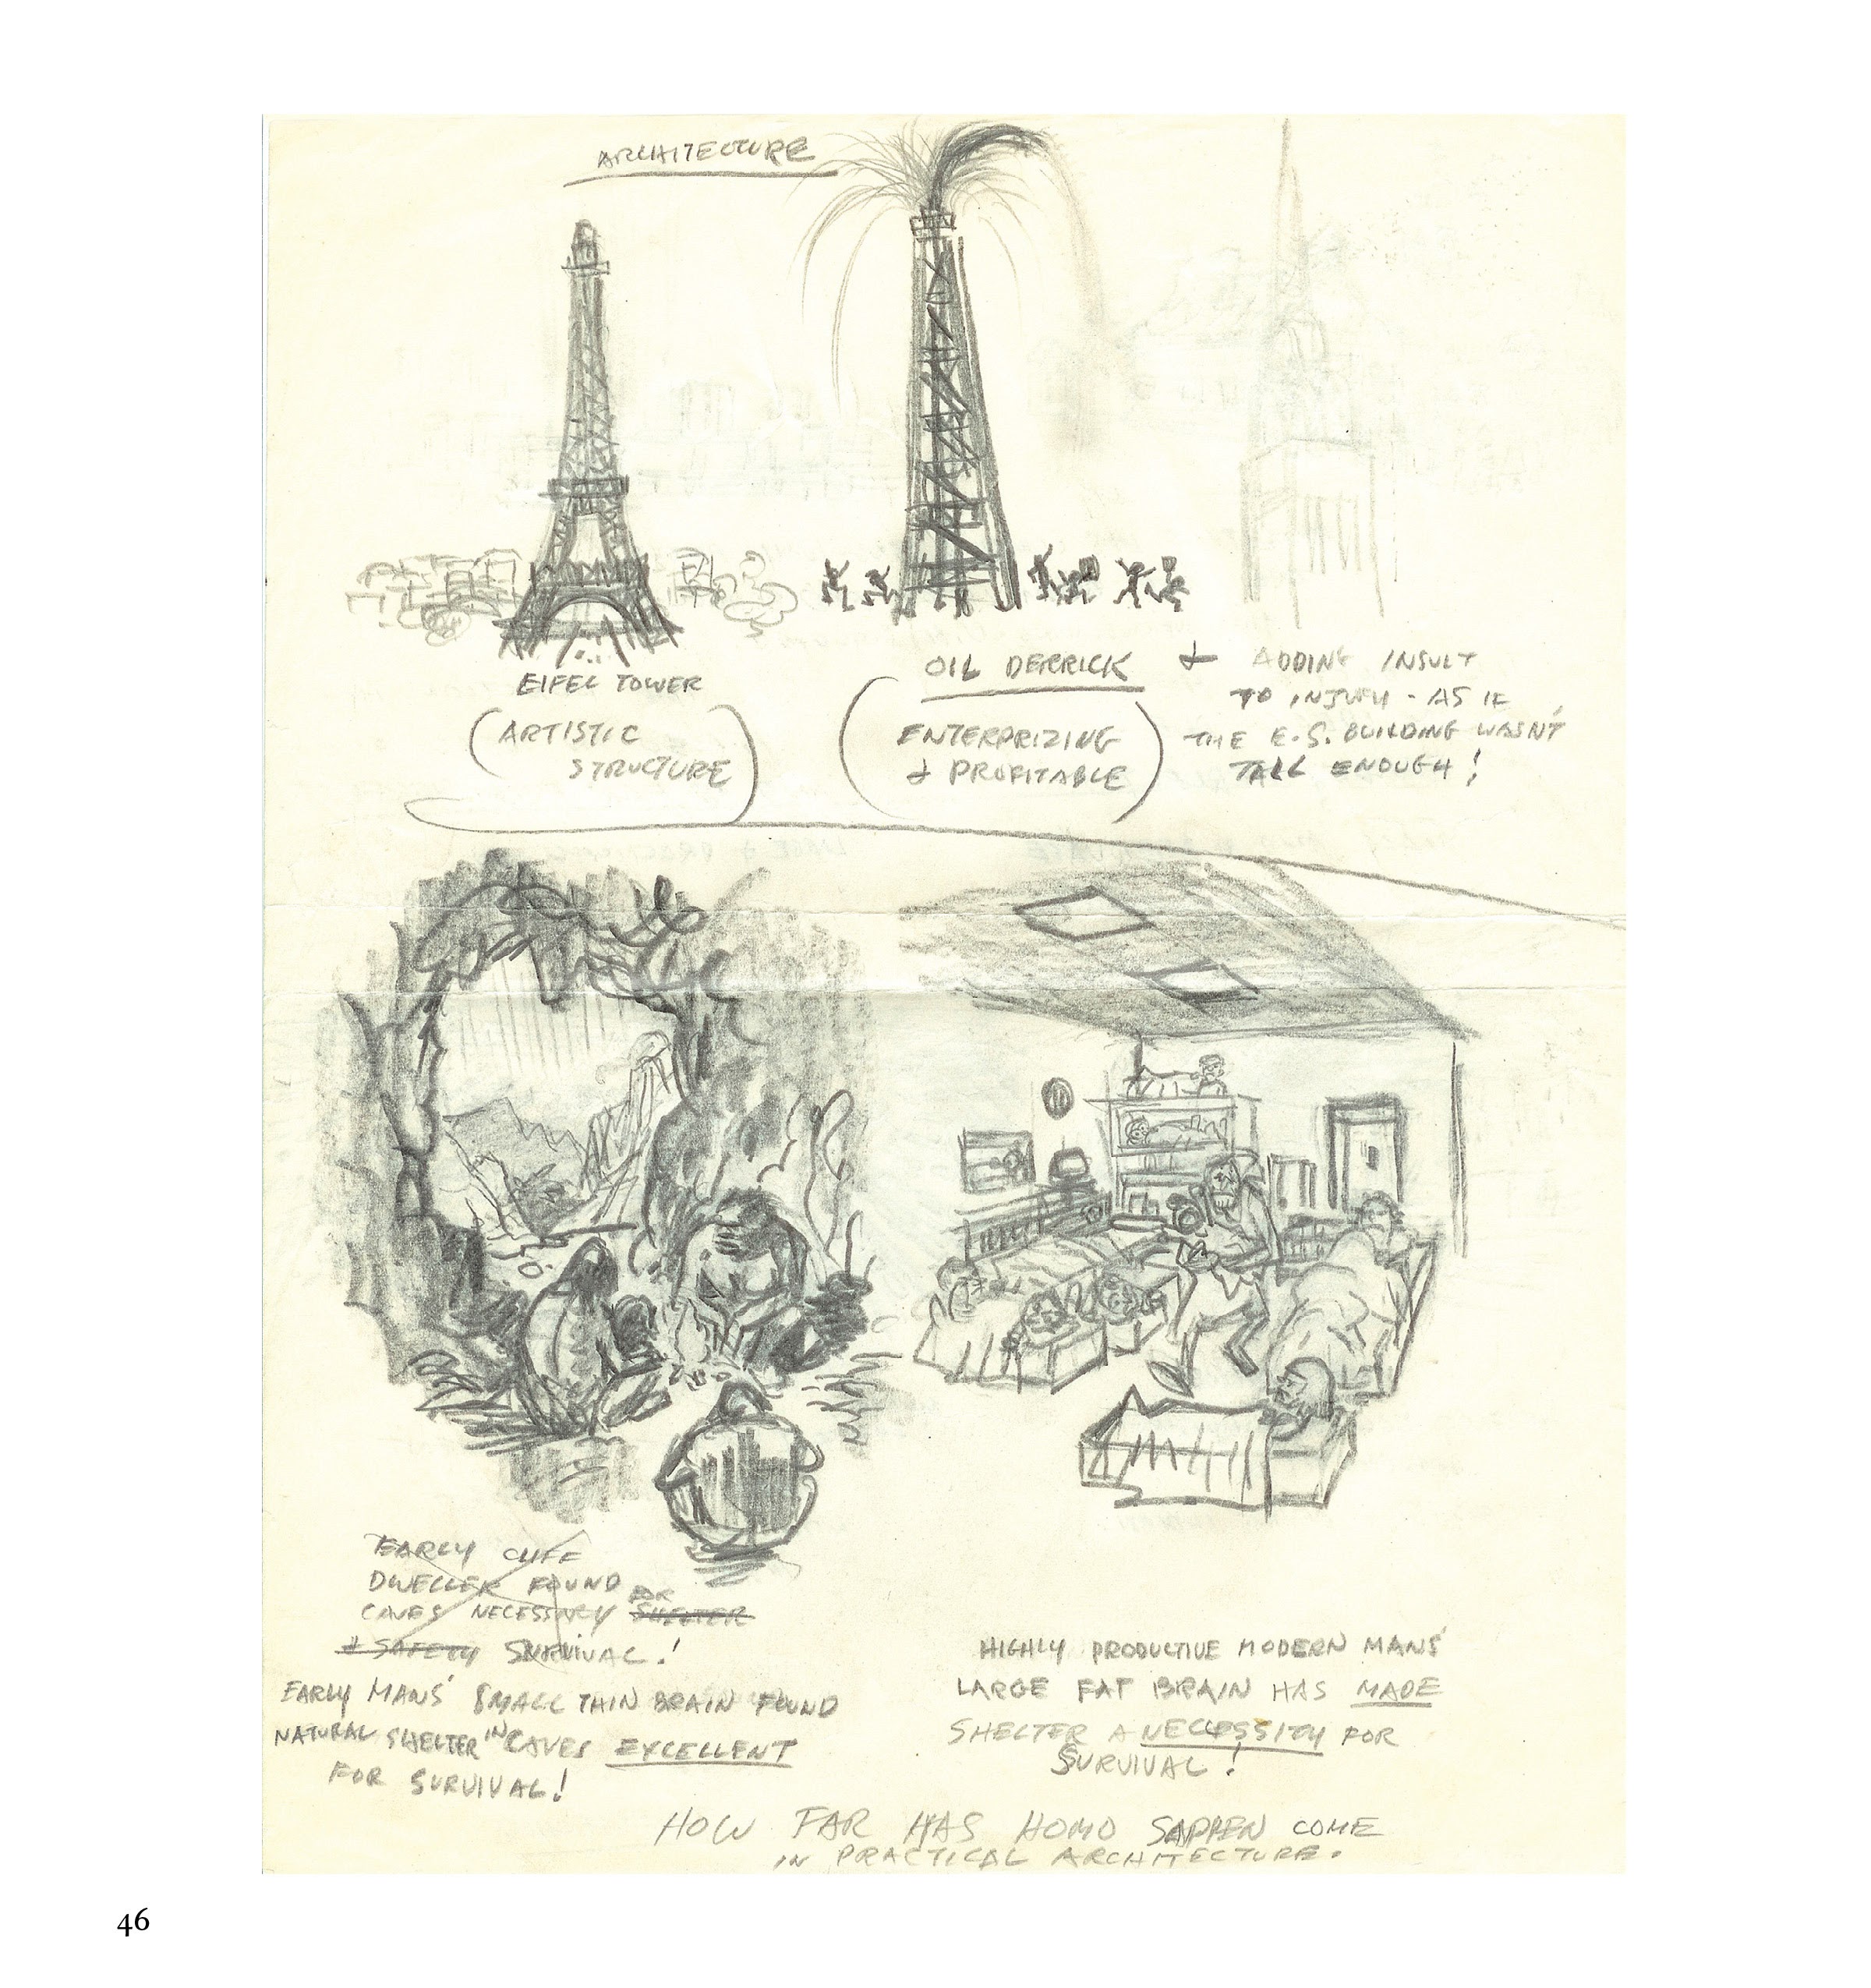 ARCHITECTURE
EIFEL TOWER
(ARTISTIC
STRUCTURE)
OIL DERRICK
(ENTERPRIZING
& PROFITABLE)
& ADDING INSULT
TO INJURY - AS IF
THE E.S. BUILDING WASN'T
TALL ENOUGH!
EARLY CLIFF
DWELLER FOUND
CAVES NECESSARY FOR SHELTER
& SAFETY SURVIVAL!
EARLY MANS' SMALL THIN BRAIN FOUND
NATURAL SHELTER IN CAVES EXCELLENT
FOR SURVIVAL!
HIGHLY PRODUCTIVE MODERN MANS'
LARGE FAT BRAIN HAS MADE
SHELTER A NECESSITY FOR
SURVIVAL!
HOW FAR HAS HOMO SAPPEN COME
IN PRACTICAL ARCHITECTURE.
46